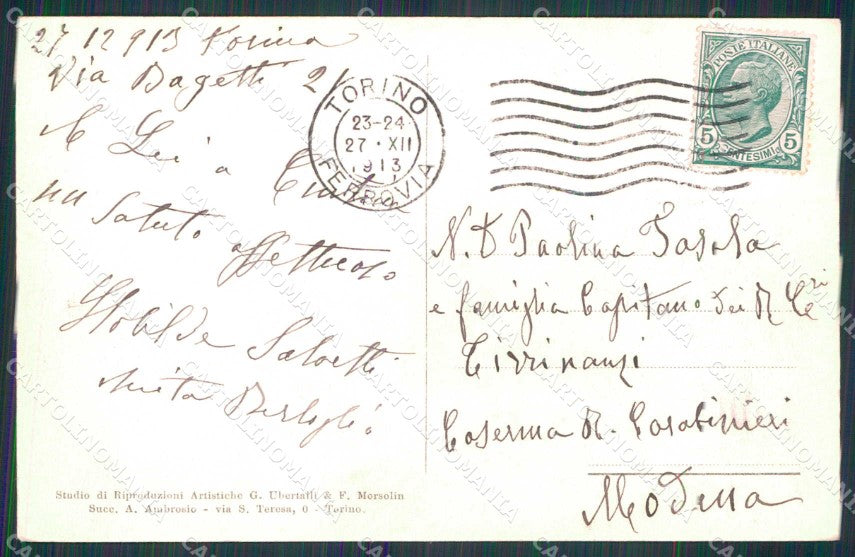 27 12 913 Torino
Via Bagetti 21
A Lei a
un saluto affettuoso
Clotilde Salvetti
Anita
TORINO
23-24
27 · XII
1913
FERROVIA
POSTE ITALIANE
5 CENTESIMI 5
N. D Paolina Fasola
e famiglia Capitano dei R. Cri
Cirrinanzi
Caserma R. Carabinieri
Modena
Studio di Riproduzioni Artistiche G. Ubertalli & F. Morsolin
Succ. A. Ambrosio - via S. Teresa, 0 - Torino.
CARTOLINOMANIA